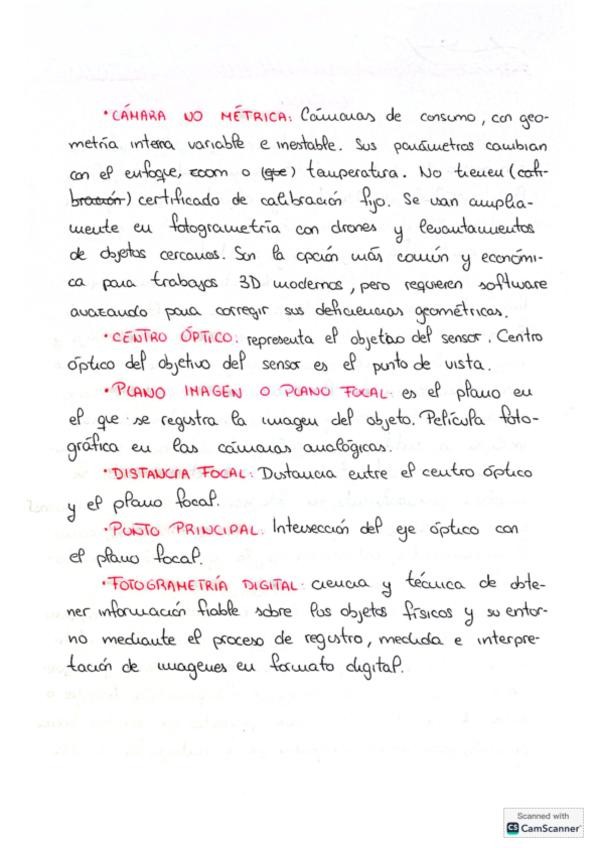 • CÁMARA NO MÉTRICA: Cámaras de consumo, con geo-
metría interna variable e inestable. Sus parámetros cambian
con el enfoque, zoom o (que) temperatura. No tienen (cali-
bración) certificado de calibración fijo. Se usan amplia-
mente en fotogrametría con drones y levantamientos
de objetos cercanos. Son la opción más común y económi-
ca para trabajos 3D modernos, pero requieren software
avanzando para corregir sus deficiencias geométricas.
• CENTRO ÓPTICO: representa el objetivo del sensor. Centro
óptico del objetivo del sensor es el punto de vista.
• PLANO IMAGEN O PLANO FOCAL: es el plano en
el que se registra la imagen del objeto. Película foto-
gráfica en las cámaras analógicas.
• DISTANCIA FOCAL: Distancia entre el centro óptico
y el plano focal.
• PUNTO PRINCIPAL: Intersección del eje óptico con
el plano focal.
• FOTOGRAMETRÍA DIGITAL: ciencia y técnica de obte-
ner información fiable sobre los objetos físicos y su entor-
no mediante el proceso de registro, medida e interpre-
tación de imagenes en formato digital.
Scanned with
CS CamScanner